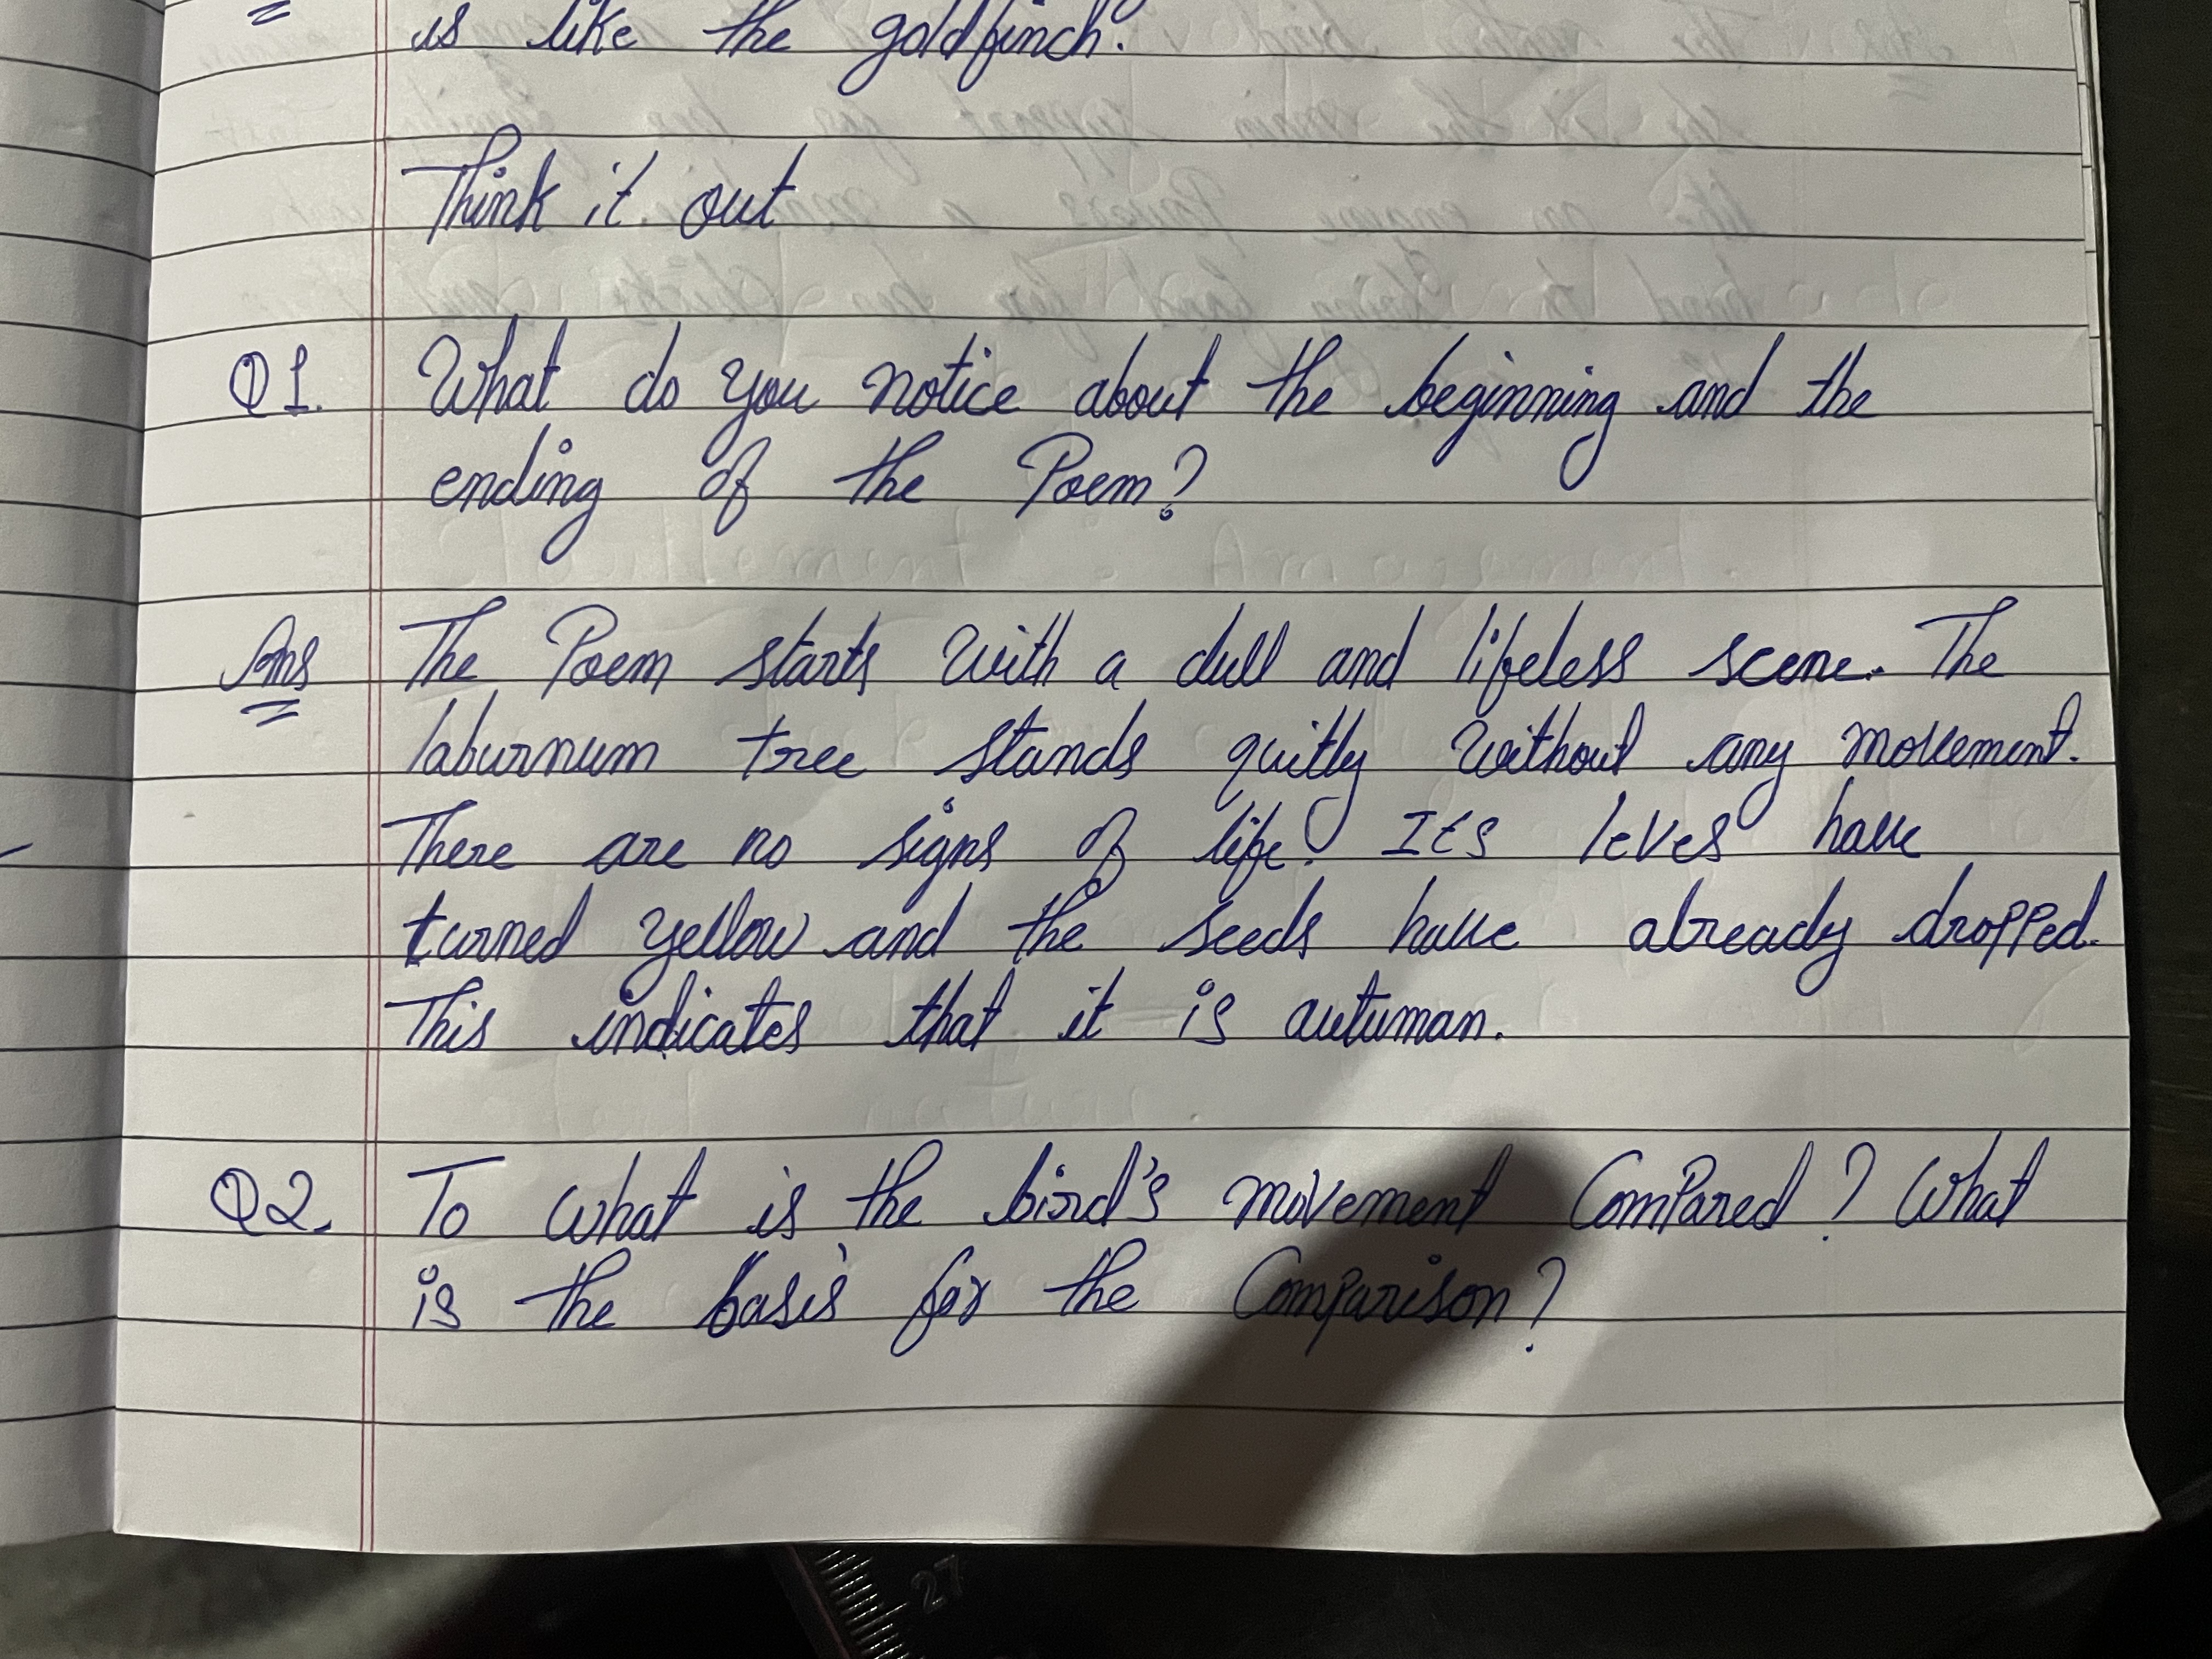 is like the goldfinch.
Think it out
Q1. What do you notice about the beginning and the
ending of the Poem?
Ans The Poem starts with a dull and lifeless scene. The
laburnum tree stands quitly without any movement.
There are no signs of life. Its leves have
turned yellow and the seeds have already dropped.
This indicates that it is autuman.
Q2. To what is the bird's movement Compared? What
is the basis for the Comparison?
27